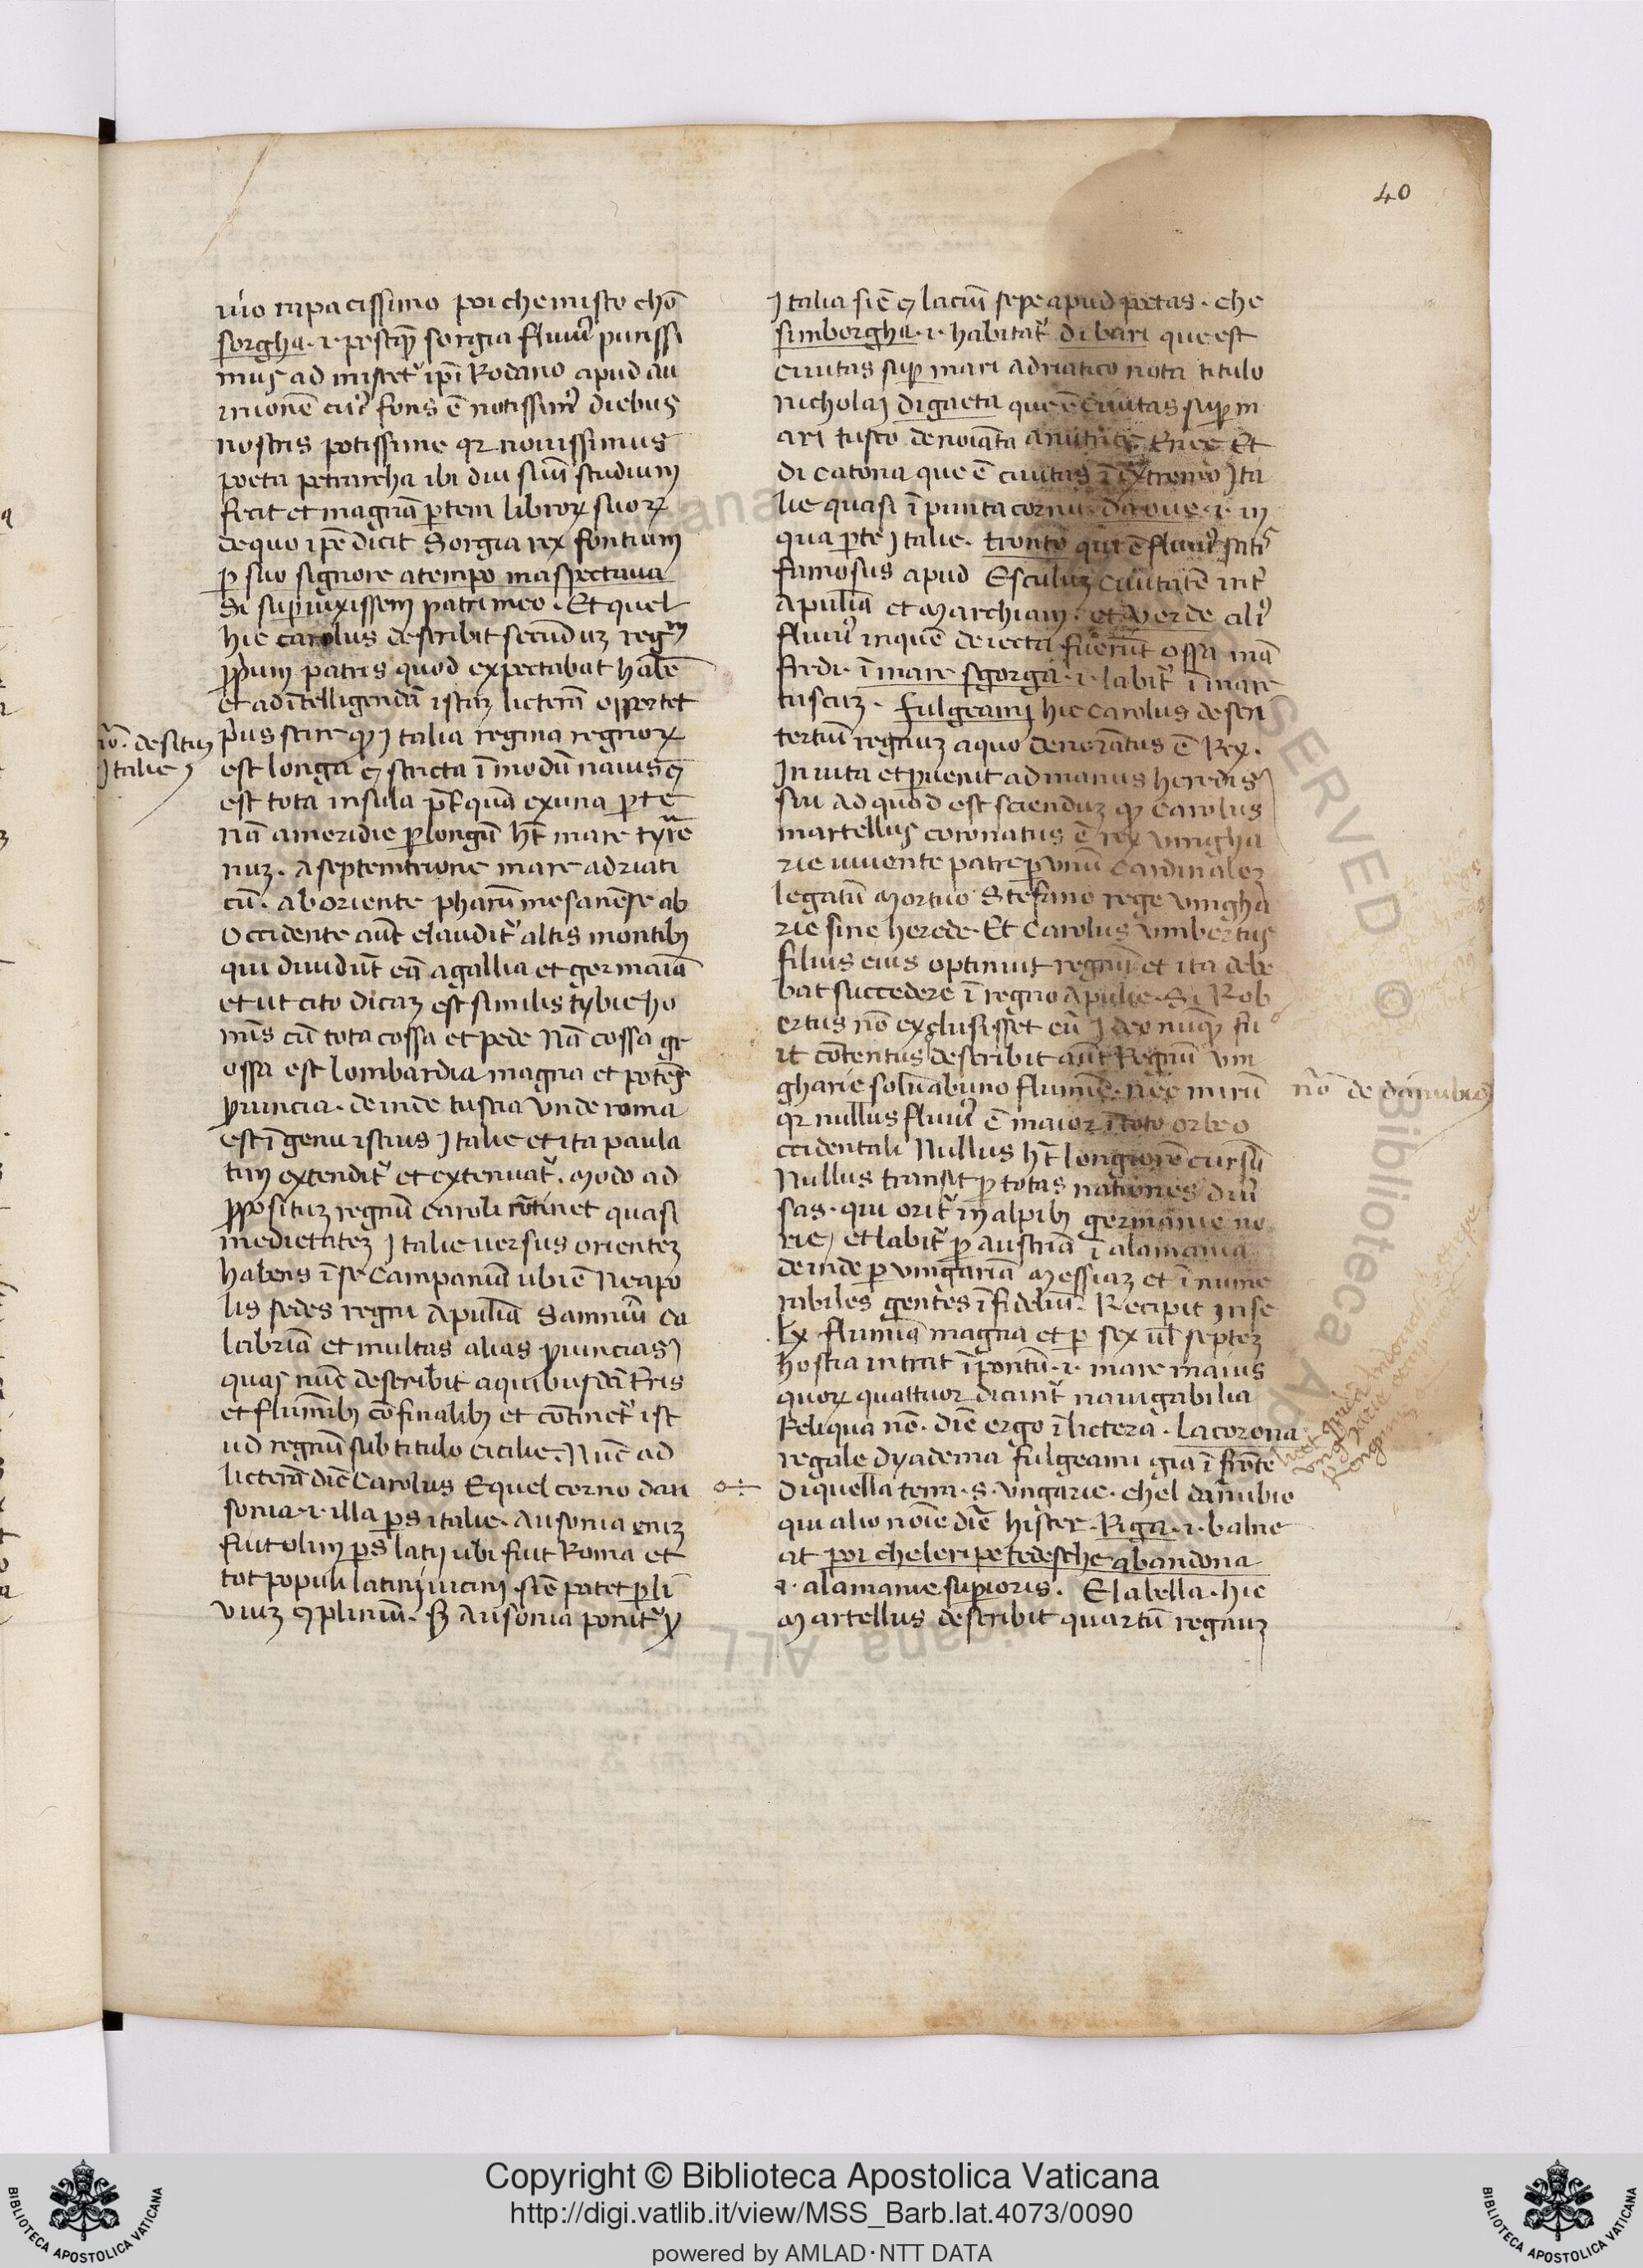 40
uio rapacissimo poi che misto chō
sorgha .i. postq̄ sorgia fluui᾿ purissi
mus ad miscet᾿ ip̄i Rodano apud au
inionē cui᾿ fons ē notissim᾿ diebus
nostris potissime qr nouissimus
poeta petrarcha ibi diu suū studium
fecit et magnā ꝑtem libroꝝ suoꝝ
de quo ip̄e dicit Sorgia rex fontium
ꝑ suo signore a tempo maspectaua
Si suꝑuixissem patri meo. Et quel
hic carolus describit secunduz regm̄
ꝓpium patris quod expectabat habē
et ad ītelligendā istaz licterā oportet
nō. de situ
Italie
p᾿us scire ꝙ Italia regina regnoꝝ
est longa et stricta ī modū nauis et
est tota insula p̄t quā ex una ꝑte
nā a meridie ꝑ longū h̄t mare tyre
nuz. A septemtrione mare adriati
cū. ab oriente pharū mesanēse ab
Occidente aūt claudit᾿ altis montibꝫ
qui diuidūt eā a gallia et germaīa
et ut cito dicaz est similis tybie ho
mīs cū tota cossa et pede Nā cossa gr
ossa est lombardia magna et potēs
ꝓuincia. deinde tuscia vnde roma
est ī genu istius Italie et ita paula
tim extendit᾿ et extenuat᾿. Modo ad
ꝓpositum regnū caroli cōtinet quasi
medietatez Italie uersus orientez
habens ī se Campaniā ubi ē Neapo
lis sedes regni Apuliā Samniū Ca
labriā et multas alias ꝓuincias
quas nūc describit a quibusdā t̄ris
et fluminibꝫ confinalibꝫ et continet᾿ ist
ud regnū sub titulo cicilie. Nūc ad
licterā dic̄ Carolus Equel corno dau
sonia .i. illa ꝑs italie. Ausonia eniz
fuit olim ꝑs latij ubi fuit Roma et
tot populi latini uicini sic̄ patet ꝑ li
uiuz et plinium. Sꝫ Ausonia ponit᾿ ꝓ
Italia sic̄ et laciū sepe apud poetas. che
simborgha .i. habitat᾿ di bari que est
ciuitas suꝑ mari adriatico nota titulo
nicholai di gaeta que ē Ciuitas suꝑ m
ari tusco denoīata a nutrice Enee Et
di catona que ē ciuitas ī extremo Ita
lie quasi ī punta cornu. da oue .i. in
qua ꝑte Italie. tronto qui ē fluui᾿ satis
famosus apud Esculuz ciuitatē int᾿
Apuliā et Marchiam. et verde ali᾿
fluui᾿ in quē deiecta fuerūt ossa mā
fredi. ī mare sgorga .i. labit᾿ ī mare
tuscuz. fulgeami hic Carolus descri
tertiū regnuz a quo denoīatus ē Rex.
In uita et ꝑuenit ad manus heredis
sui ad quod est sciendum ꝙ Carolus
martellus coronatus ē rex vngha
rie uiuente patre ꝑ vnū Cardinalez
legatū Mortuo Stefano rege vngha
rie sine herede. Et Carolus vmbertus
filius eius optinuit regnū et ita debe
bat succedere ī regno Apulie. Si Rob
ertus nō exclusisset eū Ideo nūq̄ fu
it cōtentus describit aūt Regnū vn
gharie solū ab uno flumīe. Nec mirū
nō de danubio
qr nullus fluui᾿ ē maior ī toto orbe o
ccidentali Nullus h̄t longiorē cursū
Nullus transit ꝑ totas nationes diu᾿
sas. qui orit᾿ in alpibꝫ germanie no
rie, et labit᾿ ꝑ austriā i alamania
deinde ꝑ vngariā Messiaz et ī nume
rabiles gentes īfideliū. Recipit in se
lx flumīa magna et ꝑ sex ul᾿ septez
hostia intrat ī pontū .i. mare maius
quoꝝ quattuor dicunt᾿ nauigabilia
Reliqua nō. dic̄ ergo ī lictera. La corona
regale dyadema fulgeami gia ī fronte
Di quella terra .s. vngarie. che l danubio
qui alio noīe dic̄ hister. Riga .i. balne
at poi che le ripe tedesche abandona
.i. alamanie suꝑioris. E la bella. hic
Martellus describit quartū regnuz
Copyright © Biblioteca Apostolica Vaticana
http://digi.vatlib.it/view/MSS_Barb.lat.4073/0090
powered by AMLAD·NTT DATA
BIBLIOTECA APOSTOLICA VATICANA
BIBLIOTECA APOSTOLICA VATICANA